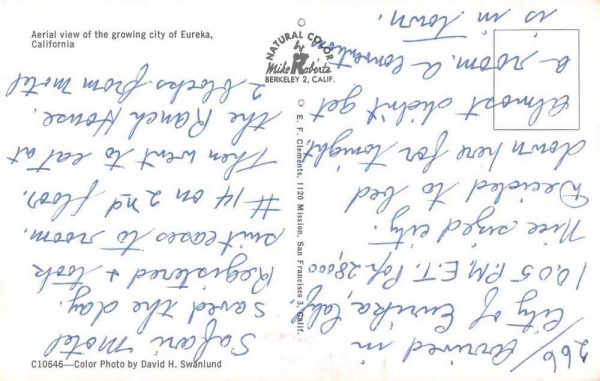 Aerial view of the growing city of Eureka,
California
NATURAL COLOR
by
Mike Roberts
BERKELEY 2, CALIF.
© E. F. Clements, 1120 Mission, San Francisco 3, Calif.
C10646—Color Photo by David H. Swanlund
266/ Arrived in
City of Eurika, Calif.
10.05 P.M. E.T. Pop. 28,000
Nice sized city.
Decided to bed
down here for tonight,
Almost didn't get
a room. a convention
is in town.
Safari motel
saved the day.
Registered + took
suitcases to room.
#14 on 2nd floor.
Then went to eat at
the Ranch House.
2 blocks from motel